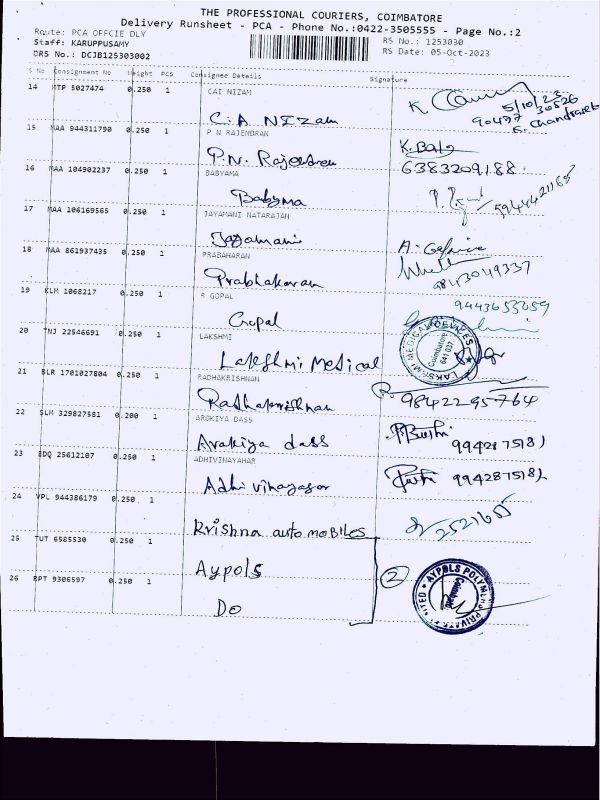 THE PROFESSIONAL COURIERS, COIMBATORE
Delivery Runsheet - PCA - Phone No.:0422-3505555 - Page No.:2
Route: PCA OFFCIE DLY
Staff: KARUPPUSAMY
DRS No.: DCJB125303002
RS No.: 1253030
RS Date: 05-Oct-2023
S No Consignment No Weight PCS Consignee Details Signature
14 MTP 5027474 0.250 1 CAI NIZAM
C.A NIZam
K
5/10/23
90477 30526
K. Chandrasek
15 MAA 944311790 0.250 1 P N RAJENDRAN
P.N. Rajendren
K.Bala
6383209188
16 MAA 104902237 0.250 1 BABYAMA
Babyma
17 MAA 106169565 0.250 1 JAYAMANI NATARAJAN
Jayamani
18 MAA 861937435 0.250 1 PRABAHARAN
Prabhakaran
9843049337
19 KLM 1068217 0.250 1 R GOPAL
Gopal
20 TNJ 22546691 0.250 1 LAKSHMI
Lakshmi Medical
LAKSHMI MEDICAL DEVICES
Coimbatore
641 037
21 BLR 1701027804 0.250 1 RADHAKRISHNAN
Radhakrishnan
9842295764
22 SLM 329827581 0.200 1 AROKIYA DASS
Arakiya dass
9942875181
23 EDQ 25612107 0.250 1 ADHIVINAYAHAR
Adhi vinayagar
9942875181
24 VPL 944386179 0.250 1
Krishna automoBILES
25 TUT 6585530 0.250 1
Aypols
26 RPT 9306597 0.250 1
Do
2
AYPOLS POLYMERS PRIVATE LIMITED